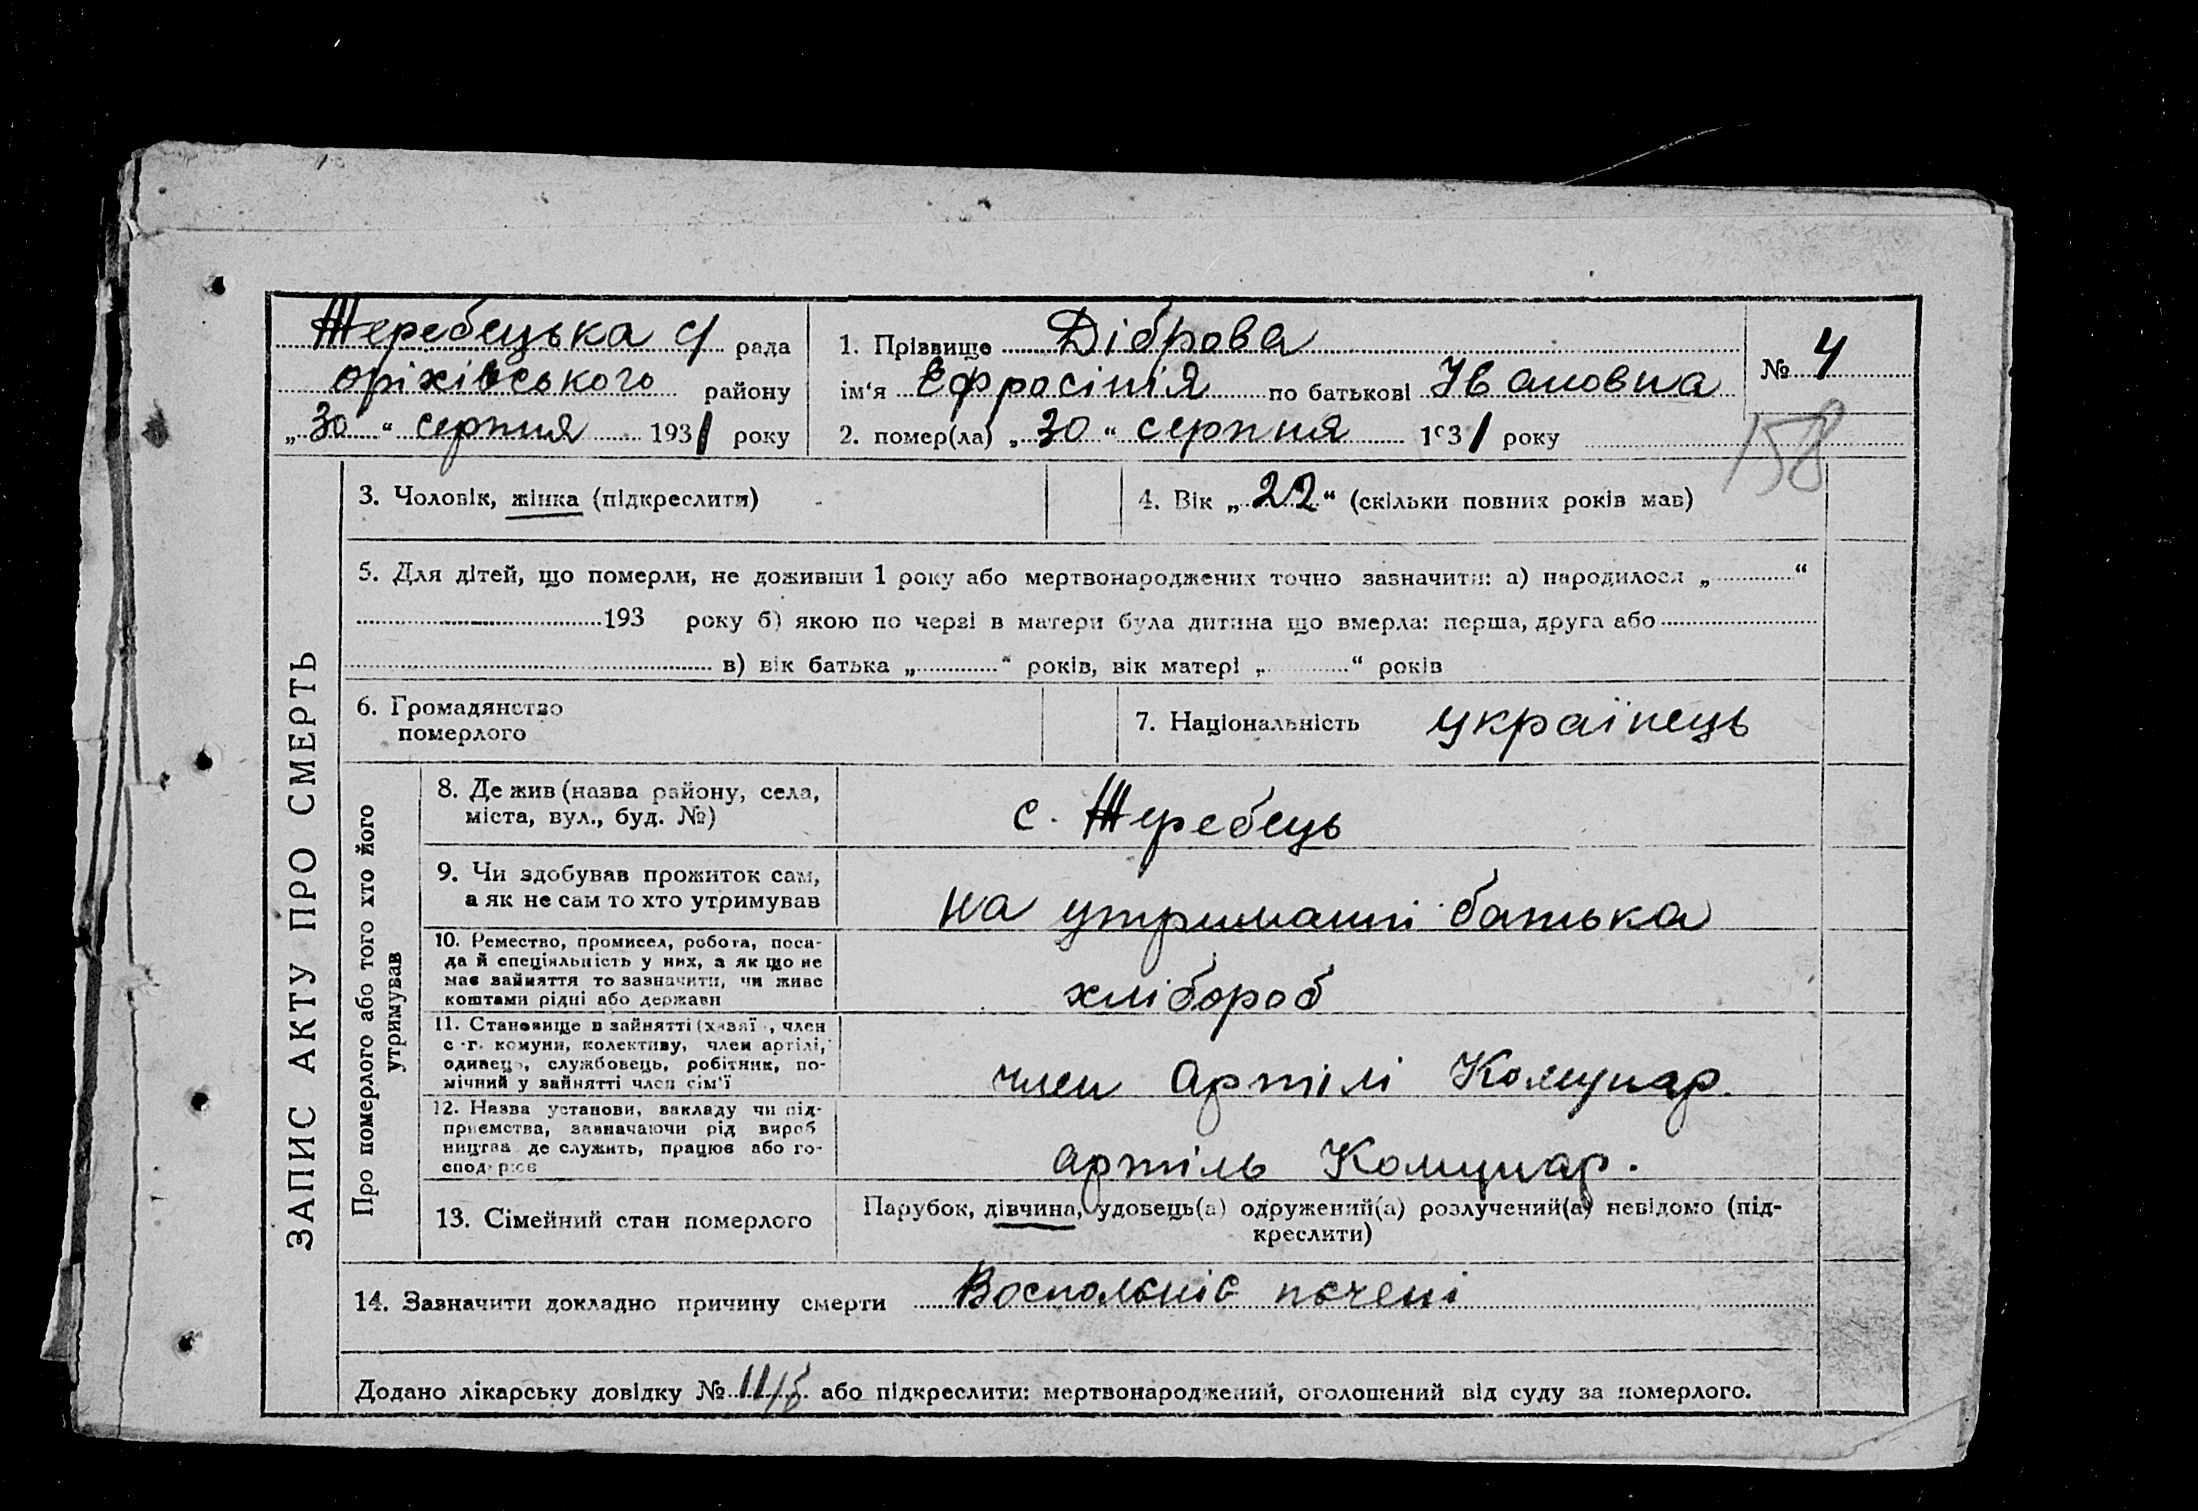 Жеребецька с/ рада
оріхівського району
„30“ серпня 1931 року
1. Прізвище Діброва
ім‘я Ефросінія по батькові Івановна
2. помер(ла) „30“ серпня 1931 року
№ 4
158
3. Чоловік, жінка (підкреслити)
4. Вік „22“ (скільки повних років мав)
5. Для дітей, що померли, не доживши 1 року або мертвонароджених точно зазначити: а) народилося „ “
193 року б) якою по черзі в матери була дитина що вмерла: перша, друга або
в) вік батька „ “ років, вік матері „ “ років
6. Громадянство
померлого
7. Національність українець
ЗАПИС АКТУ ПРО СМЕРТЬ
Про померлого або того хто його
утримував
8. Де жив (назва району, села,
міста, вул., буд. №)
с. Жеребець
9. Чи здобував прожиток сам,
а як не сам то хто утримував
на утриманні батька
10. Ремество, промисел, робота, поса-
да й спеціяльність у них, а як що не
має зайняття то зазначити, чи живе
коштами рідні або держави
хлібороб
11. Становище в зайнятті (хазяї , член
с.-г. комуни, колективу, член артілі,
одинець, службовець, робітник, по-
мічний у зайнятті член сім‘ї
член Артілі Комунар.
12. Назва установи, закладу чи під-
приємства, зазначаючи рід вироб
ництва де служить, працює або го-
сподарює
артіль Комунар.
13. Сімейний стан померлого
Парубок, дівчина, удовець(а) одружений(а) розлучений(а) невідомо (під-
креслити)
14. Зазначити докладно причину смерти Воспольніє печені
Додано лікарську довідку № або підкреслити: мертвонароджений, оголошений від суду за померлого.